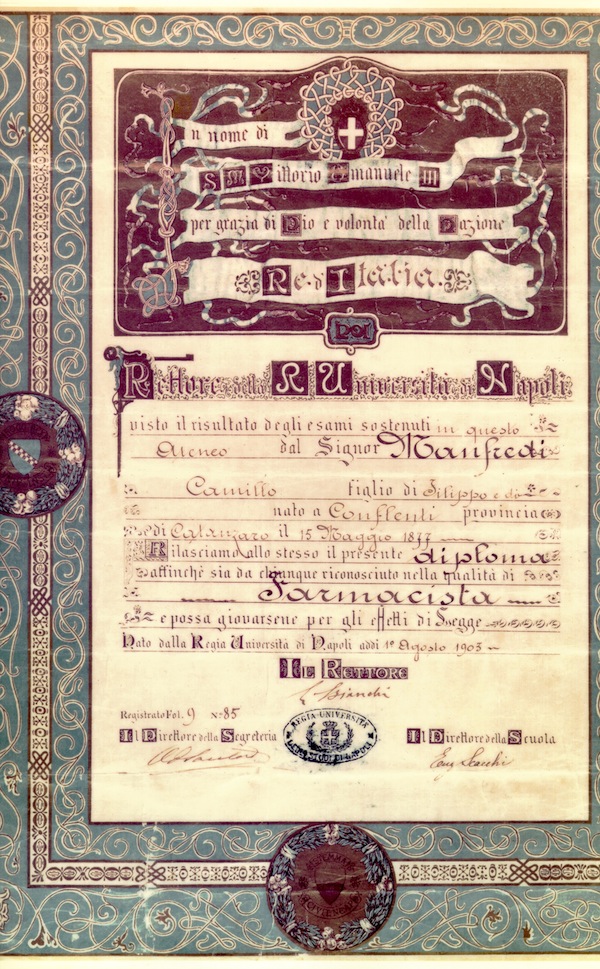 In nome di
S M Vittorio Emanuele III
per grazia di Dio e volontà della Nazione
Re d'Italia
NOI
Rettore della R Università di Napoli
visto il risultato degli esami sostenuti in questo
Ateneo dal Signor Manfredi
Camillo figlio di Filippo e di
nato a Conflenti provincia
di Catanzaro il 15 Maggio 1877
Rilasciamo allo stesso il presente diploma
affinchè sia da chiunque riconosciuto nella qualità di
Farmacista
e possa giovarsene per gli effetti di Legge
Dato dalla Regia Università di Napoli addì 1° Agosto 1903
IL RETTORE
Bianchi
Registrato Fol. 9 N. 85
Il Direttore della Segreteria
Il Direttore della Scuola
REGIA UNIVERSITÀ
Eug Scacchi